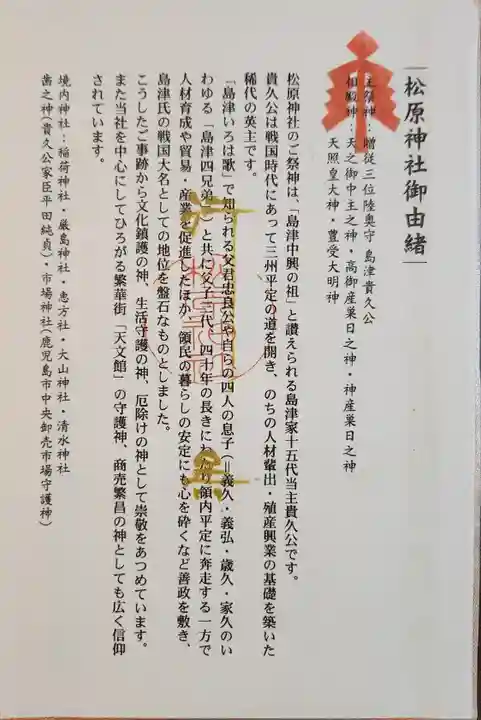 松原神社御由緒
主祭神：贈従三位陸奥守 島津貴久公
相殿神：天之御中主之神・高御産巣日之神・神産巣日之神
天照皇大神・豊受大明神
松原神社のご祭神は、「島津中興の祖」と讃えられる島津家十五代当主貴久公です。
貴久公は戦国時代にあって三州平定の道を開き、のちの人材輩出・殖産興業の基礎を築いた
稀代の英主です。
「島津いろは歌」で知られる父君忠良公や自らの四人の息子（＝義久・義弘・歳久・家久のい
わゆる「島津四兄弟」）と共に父子三代、四十年の長きにわたり領内平定に奔走する一方で
人材育成や貿易・産業を促進したほか、領民の暮らしの安定にも心を砕くなど善政を敷き、
島津氏の戦国大名としての地位を盤石なものとしました。
こうしたご事跡から文化鎮護の神、生活守護の神、厄除けの神として崇敬をあつめています。
また当社を中心にしてひろがる繁華街「天文館」の守護神、商売繁昌の神としても広く信仰
されています。
境内神社：稲荷神社・厳島神社・恵方社・大山神社・清水神社
歯之神（貴久公家臣平田純貞）・市場神社（鹿児島市中央卸売市場守護神）